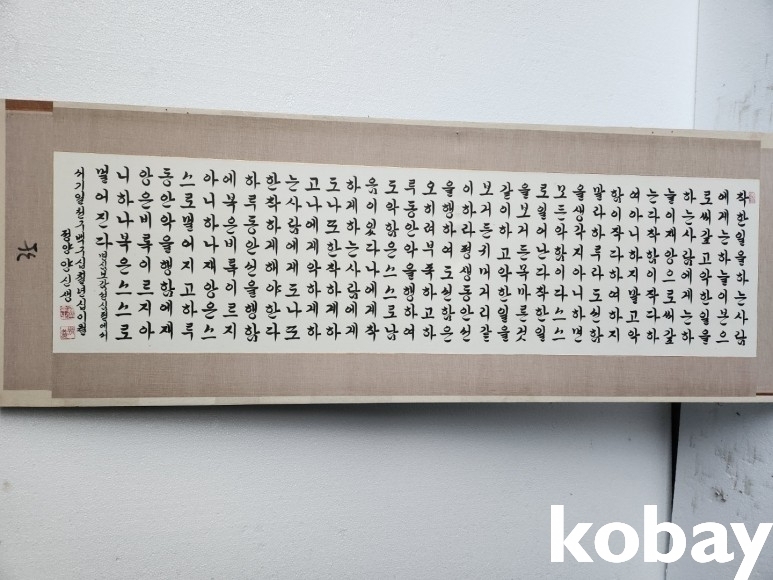 착한일을하는사람
에게는하늘이복으
로써갚고악한일을
하는사람에게는하
늘이재앙으로써갚
는다착함이작다하
여아니하지말고악
함이작다하여하지
말라하루라도선함
을생각지아니하면
모든악함이다스스
로일어난다착한일
을보거든목마른것
같이하고악한일을
보거든귀머거리같
이하라평생동안선
을행하여도선함은
오히려부족하고하
루동안악을행하여
도악함은스스로남
음이있다나에게착
하게하는사람에게
도나또한착하게하
고나에게악하게하
는사람에게도나또
한착하게해야한다
하루동안선을행함
에복은비록이르지
아니하나재앙은스
스로멀어지고하루
동안악을행함에재
앙은비록이르지아
니하나복은스스로
멀어진다
정양안신생
kobay